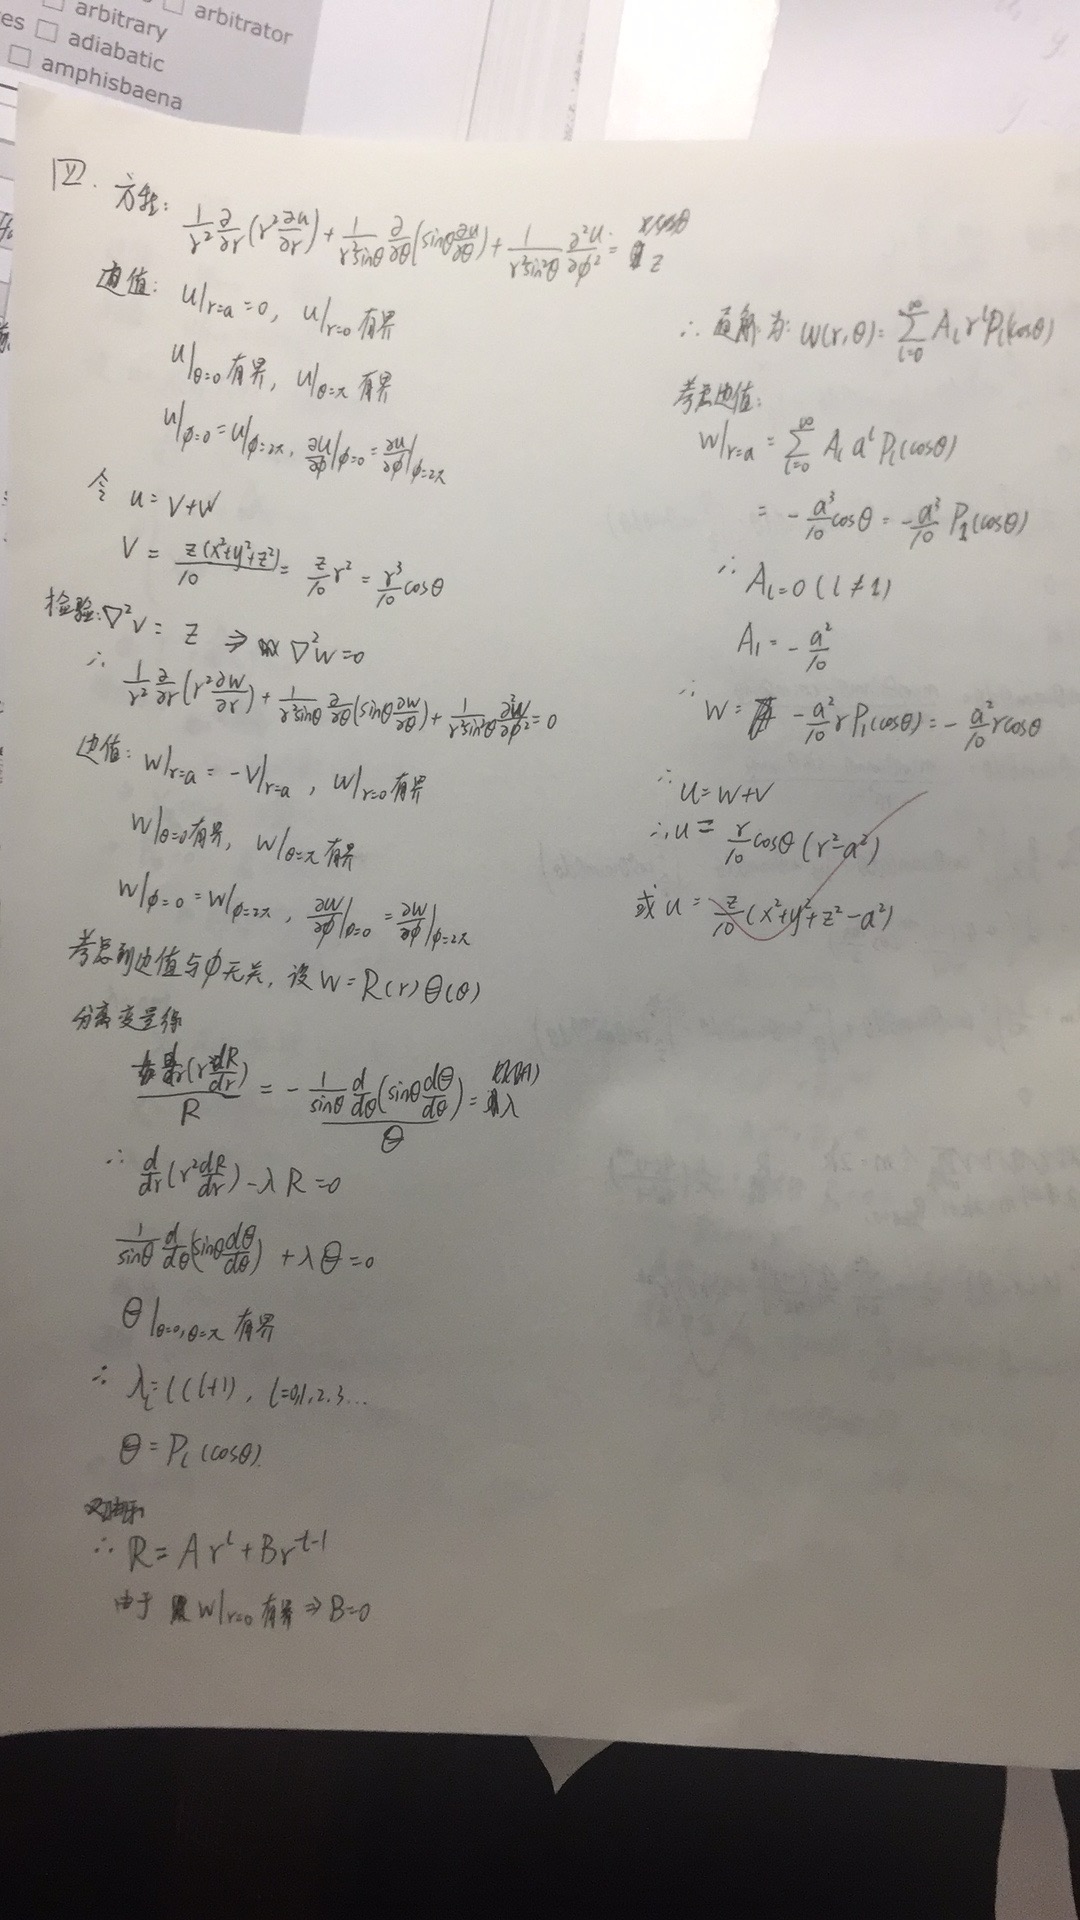 arbitrary
arbitrator
es
adiabatic
amphisbaena
四. 方程: \frac{1}{r^2}\frac{∂}{∂r}(r^2\frac{∂u}{∂r})+\frac{1}{r^2sinθ}\frac{∂}{∂θ}(sinθ\frac{∂u}{∂θ})+\frac{1}{r^2sin^2θ}\frac{∂^2u}{∂φ^2}= z
边值: u|_{r=a}=0, u|_{r=0}有界
u|_{θ=0}有界, u|_{θ=π}有界
u|_{φ=0}=u|_{φ=2π}, \frac{∂u}{∂φ}|_{φ=0}=\frac{∂u}{∂φ}|_{φ=2π}
令 u=V+W
V=\frac{z(x^2+y^2+z^2)}{10}=\frac{z}{10}r^2=\frac{r^3}{10}cosθ
检验:∇^2V=z ⇒ ∇^2W=0
∴ \frac{1}{r^2}\frac{∂}{∂r}(r^2\frac{∂W}{∂r})+\frac{1}{r^2sinθ}\frac{∂}{∂θ}(sinθ\frac{∂W}{∂θ})+\frac{1}{r^2sin^2θ}\frac{∂^2W}{∂φ^2}=0
边值: W|_{r=a}=-V|_{r=a}, W|_{r=0}有界
W|_{θ=0}有界, W|_{θ=π}有界
W|_{φ=0}=W|_{φ=2π}, \frac{∂W}{∂φ}|_{φ=0}=\frac{∂W}{∂φ}|_{φ=2π}
考虑到边值与φ无关, 设W=R(r)Θ(θ)
分离变量得
\frac{\frac{d}{dr}(r^2\frac{dR}{dr})}{R}=-\frac{\frac{1}{sinθ}\frac{d}{dθ}(sinθ\frac{dΘ}{dθ})}{Θ}=λ
∴ \frac{d}{dr}(r^2\frac{dR}{dr})-λR=0
\frac{1}{sinθ}\frac{d}{dθ}(sinθ\frac{dΘ}{dθ})+λΘ=0
Θ|_{θ=0,θ=π}有界
∴ λ_l=l(l+1), l=0,1,2,3...
Θ=P_l(cosθ).
∴ R=Ar^l+Br^{-l-1}
由于 W|_{r=0}有界⇒B=0
∴ 通解为: W(r,θ)=\sum_{l=0}^{∞}A_l r^l P_l(cosθ)
考虑边值:
W|_{r=a}=\sum_{l=0}^{∞}A_l a^l P_l(cosθ)
=-\frac{a^3}{10}cosθ=-\frac{a^3}{10}P_1(cosθ)
∴ A_l=0(l≠1)
A_1=-\frac{a^2}{10}
∴ W=-\frac{a^2}{10}rP_1(cosθ)=-\frac{a^2}{10}rcosθ
∴ u=W+V
∴ u=\frac{r}{10}cosθ(r^2-a^2)
或u=\frac{z}{10}(x^2+y^2+z^2-a^2)